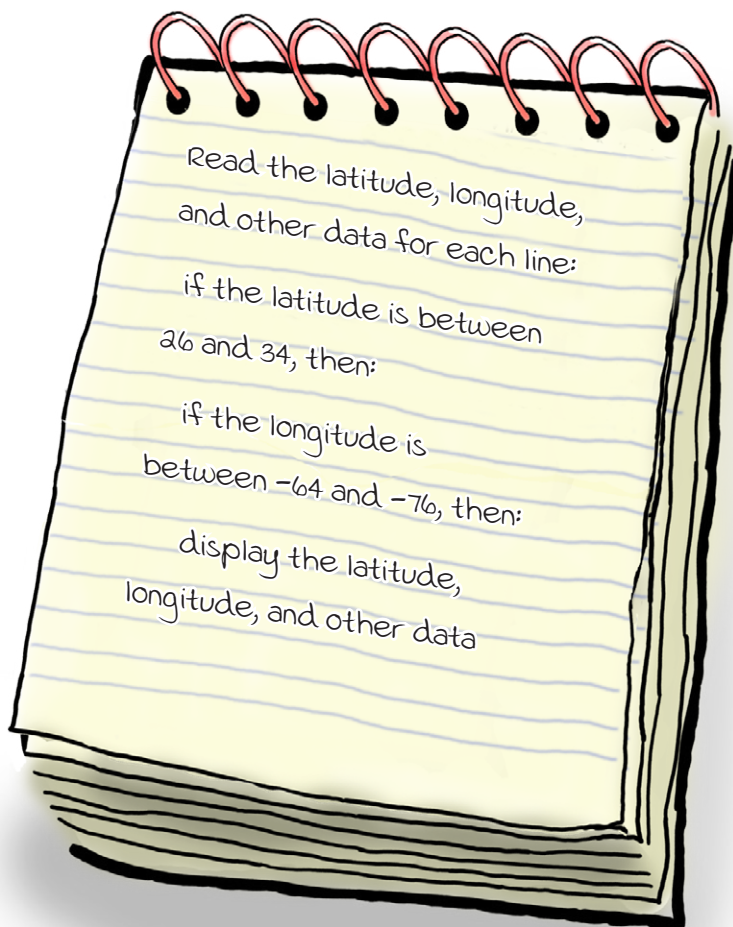 Read the latitude, longitude,
and other data for each line:
if the latitude is between
26 and 34, then:
if the longitude is
between -64 and -76, then:
display the latitude,
longitude, and other data